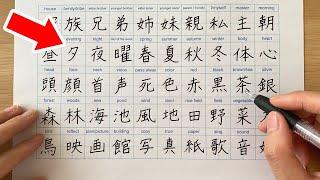 house family/tribe elder brother younger brother elder sister younger sister parent I/myself master morning
族 兄 弟 姉 妹 親 私 主 朝
evening night day of the week spring summer autumn winter body heart
昼 夕 夜 曜 春 夏 秋 冬 体 心
head face neck voice pass away color red black tea silver
頭 顔 首 声 死 色 赤 黒 茶 銀
forest woods sea pond wind rice field field vegetable
森 林 海 池 風 地 田 野 菜
bird reflect picture/plan building copy true paper song sound
鳥 映 画 館 写 真 紙 歌 音